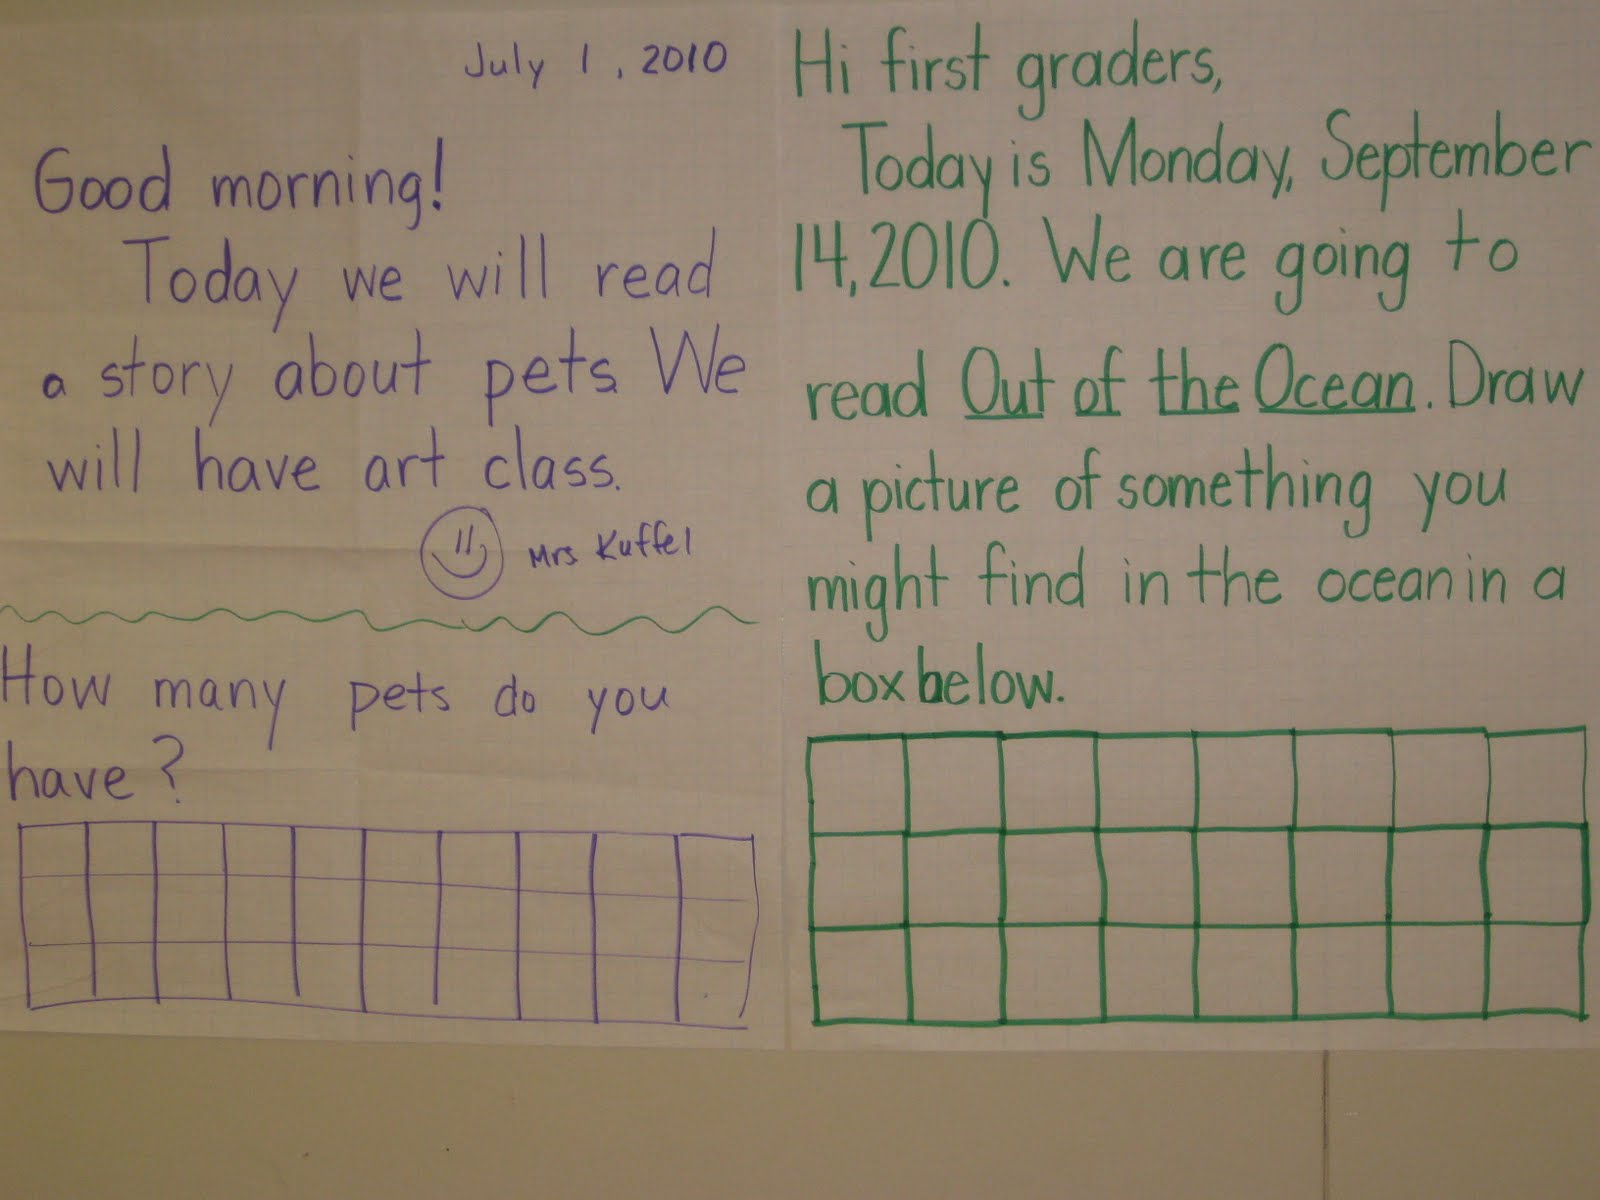 July 1, 2010
Good morning!
Today we will read
a story about pets. We
will have art class.
Mrs. Kuffel
How many pets do you
have?
Hi first graders,
Today is Monday, September
14, 2010. We are going to
read Out of the Ocean. Draw
a picture of something you
might find in the ocean in a
box below.